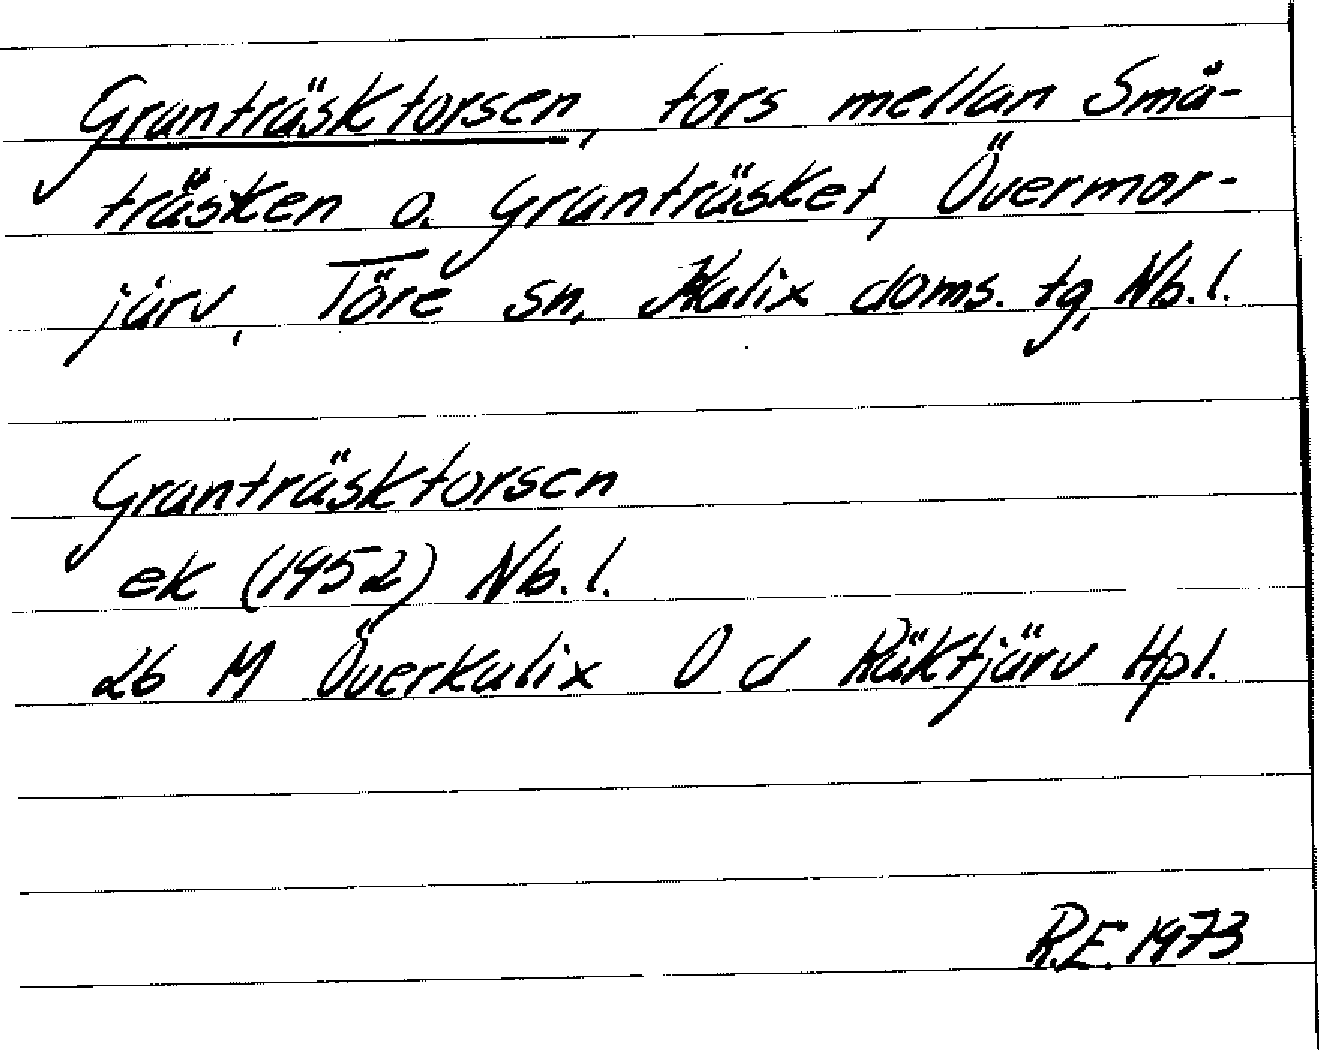 Granträskforsen, fors mellan Små-
träsken o. Granträsket, Övermor-
järv, Töre sn, Kalix doms. tg, Nb. l.
Granträskforsen
ek (1952) Nb. l.
26 M Överkalix 0 d Räktjärv Hpl.
R.E. 1973